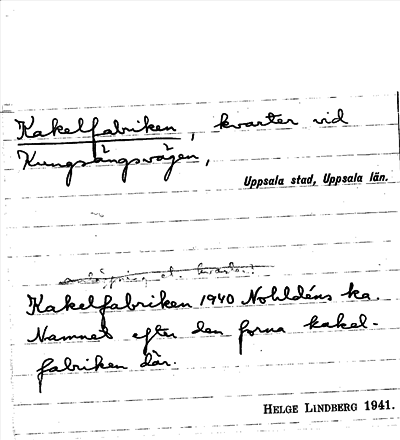 Kakelfabriken, kvarter vid
Kungsängsvägen,
Uppsala stad, Uppsala län.
Kakelfabriken 1940 Nohldéns ka.
Namnet efter den forna kakel-
fabriken där.
HELGE LINDBERG 1941.